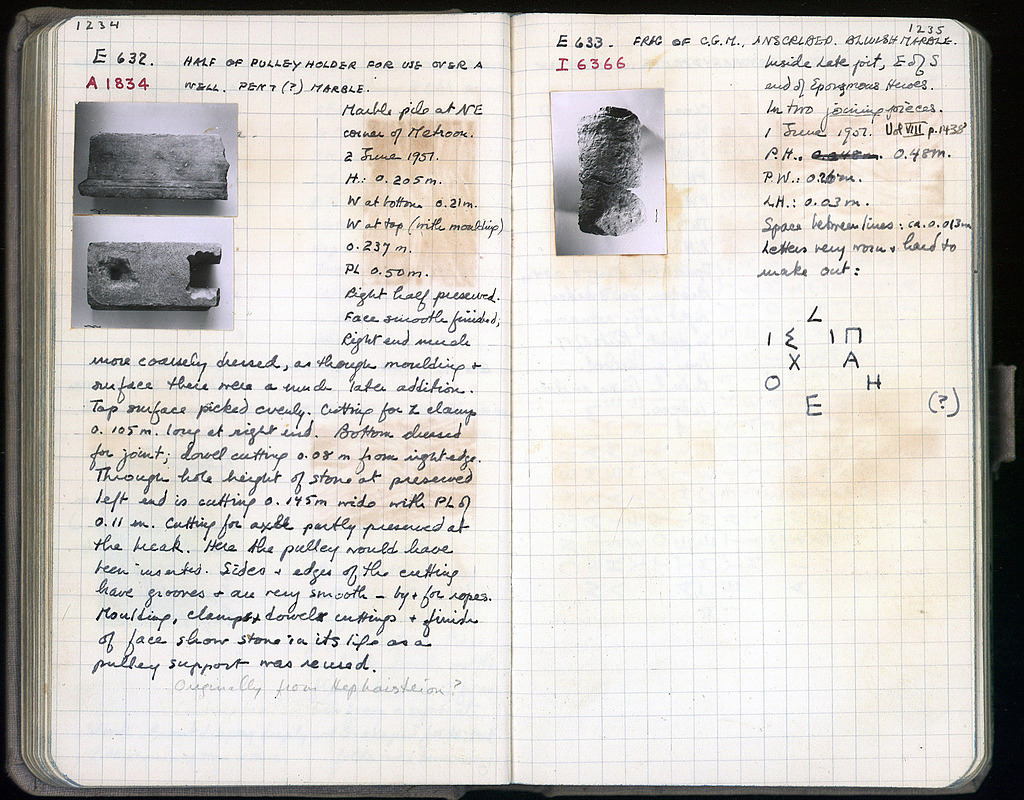 1234
E 632. HALF OF PULLEY HOLDER FOR USE OVER A
A 1834 WELL. PENT (?) MARBLE.
Marble pile at NE
corner of Metroon.
2 June 1951.
H.: 0.205 m.
W at bottom 0.21 m.
W at top (with moulding)
0.237 m.
PL 0.50 m.
Right half preserved.
Face smooth finished,
Right end much
more coarsely dressed, as though moulding +
surface there were a much later addition.
Top surface picked evenly. Cutting for Z clamp
0.105 m. long at right end. Bottom dressed
for joint; dowel cutting 0.08 m from right edge.
Through hole height of stone at preserved
left end is cutting 0.145 m wide with PL of
0.11 m. Cutting for axle partly preserved at
the break. Here the pulley would have
been inserted. Sides + edges of the cutting
have grooves + are very smooth – by + for ropes.
Moulding, clamp + dowel cuttings + finish
of face show stone in its life as a
pulley support was reused.
Originally from Hephaisteion?
1235
E 633. FRAG OF C.G.M., INSCRIBED. BLUISH MARBLE.
I 6366
Inside Late pit, E of S
end of Eponymous Heroes.
In two joining pieces.
1 June 1951. Vol VIII p. 1438
P.H.: 0.48 m.
P.W.:
LH.: 0.03 m.
Space between lines: ca. 0.013 m
Letters very worn + hard to
make out:
L
I Σ I Π
X A
O H
E (?)